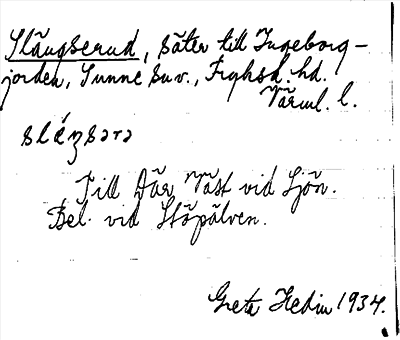 Slängserud, Säter till Ingeborg-
jorden, Sunne sv., Fryksd. hd.
Värml. l.
Till Där Väst vid Sjön.
Bel. vid Stöpälven.
Greta Hedin 1934.